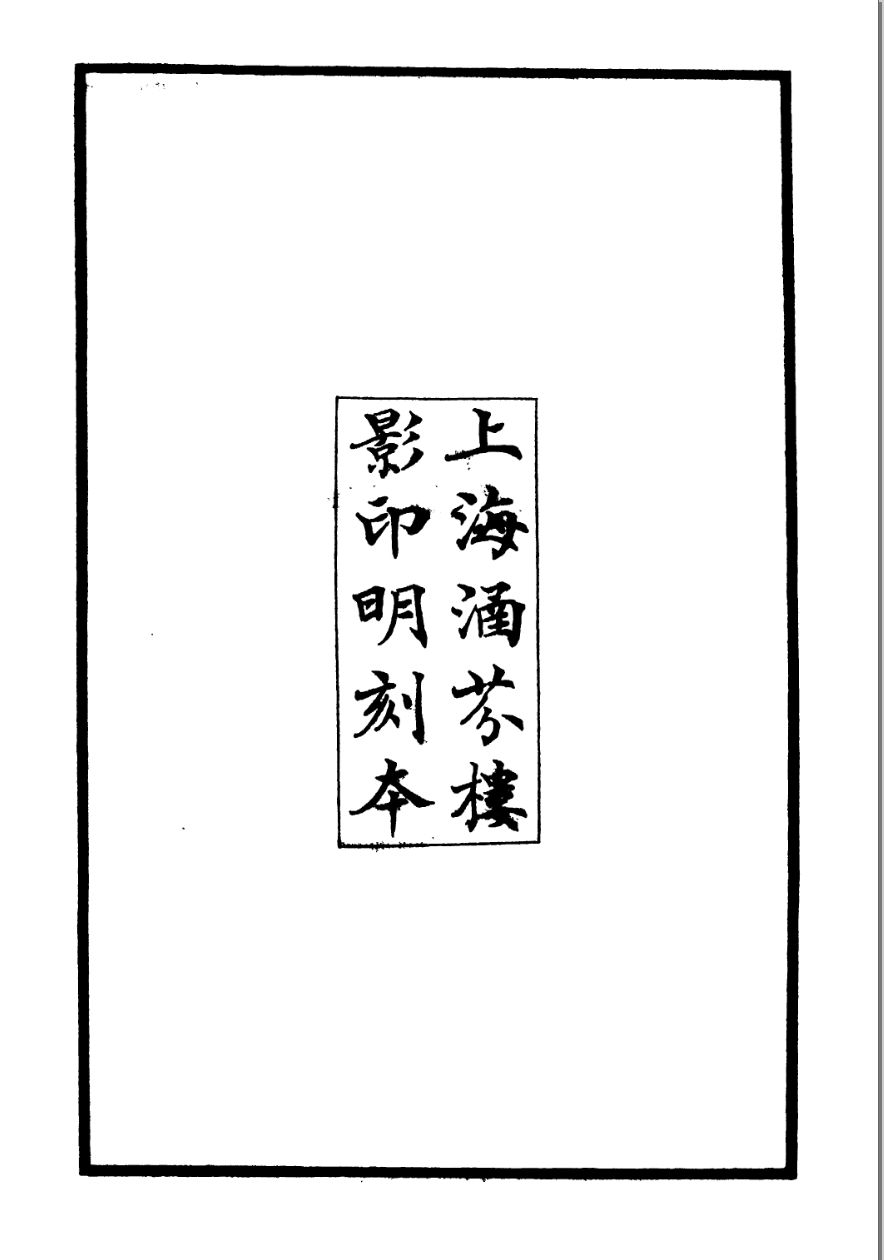 上海涵芬樓
影印明刻本